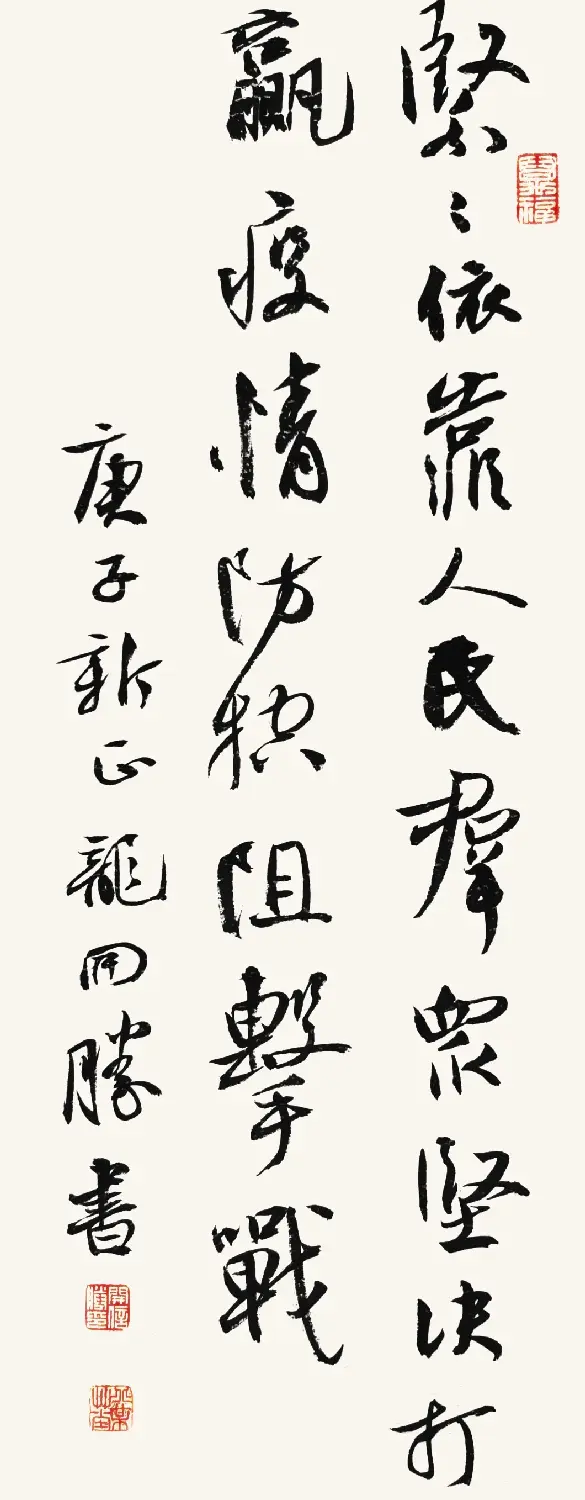 緊〻依靠人民羣眾堅决打
贏疫情防控阻擊戰
庚子新正龍開勝書